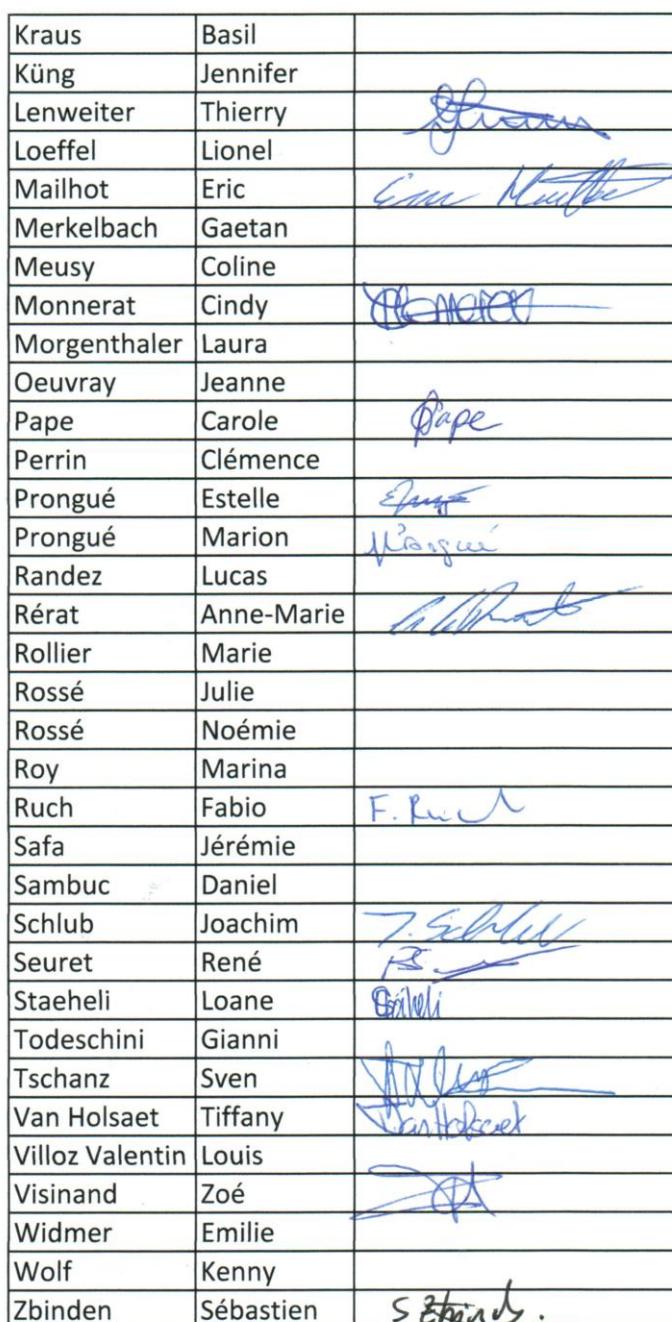 Kraus Basil
Küng Jennifer
Lenweiter Thierry
Loeffel Lionel
Mailhot Eric
Merkelbach Gaetan
Meusy Coline
Monnerat Cindy
Morgenthaler Laura
Oeuvray Jeanne
Pape Carole Pape
Perrin Clémence
Prongué Estelle
Prongué Marion
Randez Lucas
Rérat Anne-Marie
Rollier Marie
Rossé Julie
Rossé Noémie
Roy Marina
Ruch Fabio F. Ruch
Safa Jérémie
Sambuc Daniel
Schlub Joachim J. Schlub
Seuret René
Staeheli Loane
Todeschini Gianni
Tschanz Sven
Van Holsaet Tiffany VanHolsaet
Villoz Valentin Louis
Visinand Zoé
Widmer Emilie
Wolf Kenny
Zbinden Sébastien